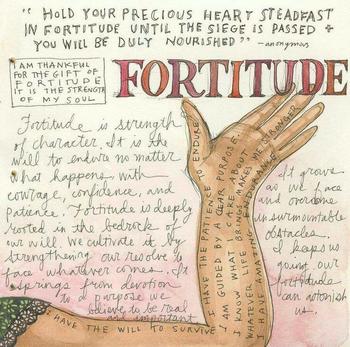 "HOLD YOUR PRECIOUS HEART STEADFAST
IN FORTITUDE UNTIL THE SIEGE IS PASSED +
YOU WILL BE DULY NOURISHED" -anonymous
I AM THANKFUL
FOR THE GIFT OF
FORTITUDE
IT IS THE STRENGTH
OF MY SOUL
FORTITUDE
Fortitude is strength
of character. It is the
will to endure no matter
what happens with
courage, confidence, and
patience. Fortitude is deeply
rooted in the bedrock of
our will. We cultivate it by
strengthening our resolve to
face whatever comes. It
springs from devotion
to a purpose we
believe to be real
and important
I HAVE THE WILL TO SURVIVE
I HAVE THE PATIENCE TO ENDURE
I AM GUIDED BY A CLEAR PURPOSE
I KNOW WHAT I CARE ABOUT
WHATEVER LIFE BRINGS MAKES ME STRONGER
I HAVE AMAZING
It grows
as we face
and overcome
insurmountable
obstacles.
It keeps us
going. Our
fortitude
can astonish
us.